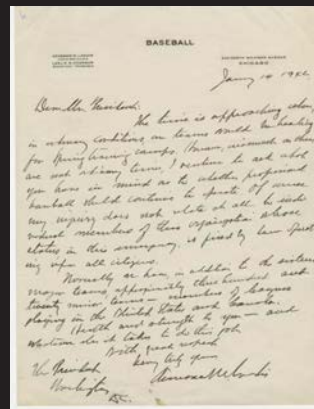 BASEBALL
CHICAGO
January 14 1942
Dear Mr. President:
The time is approaching when,
in ordinary conditions, our teams would be heading
for Spring training camps. However, inasmuch as these
are not ordinary times, I venture to ask what
you have in mind as to whether professional
baseball should continue to operate. Of course
my inquiry does not relate at all to indi-
vidual members of this organization whose
status in this emergency is fixed by law
upon all citizens.
Normally we have, in addition to the sixteen
major teams, approximately three hundred and
twenty minor teams - members of leagues
playing in the United States and Canada.
Health and strength to you - and
whatever else it takes to do this job.
With great respect
Very truly yours
The President
Washington
D.C.